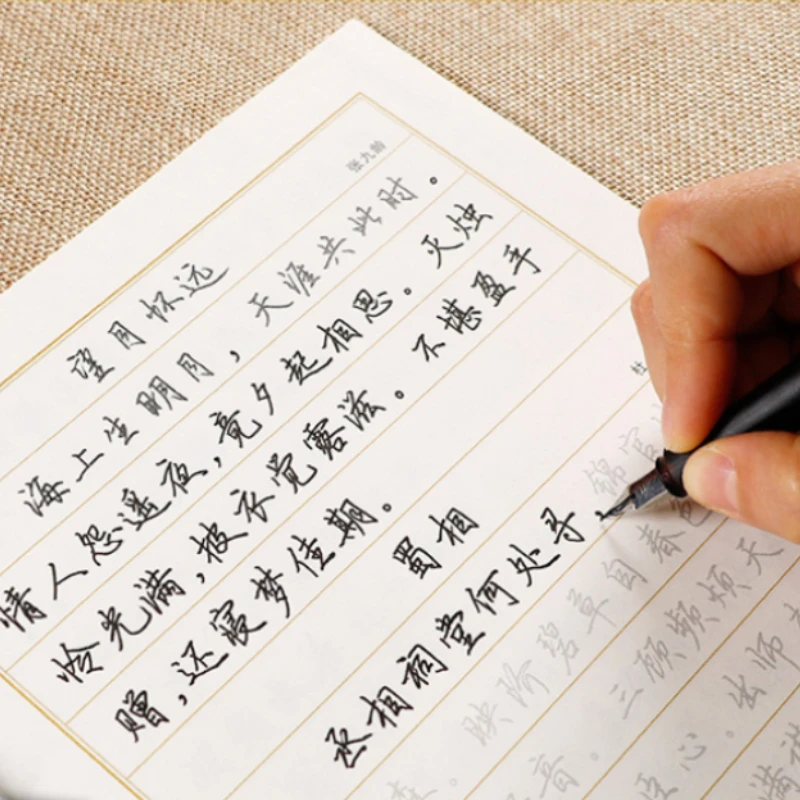 望月怀远
张九龄
海上生明月，天涯共此时。
情人怨遥夜，竟夕起相思。灭烛
怜光满，披衣觉露滋。不堪盈手
赠，还寝梦佳期。
蜀相
丞相祠堂何处寻，锦官
森。映阶碧草自春色
音。三顾频烦天
臣心。出师
满襟